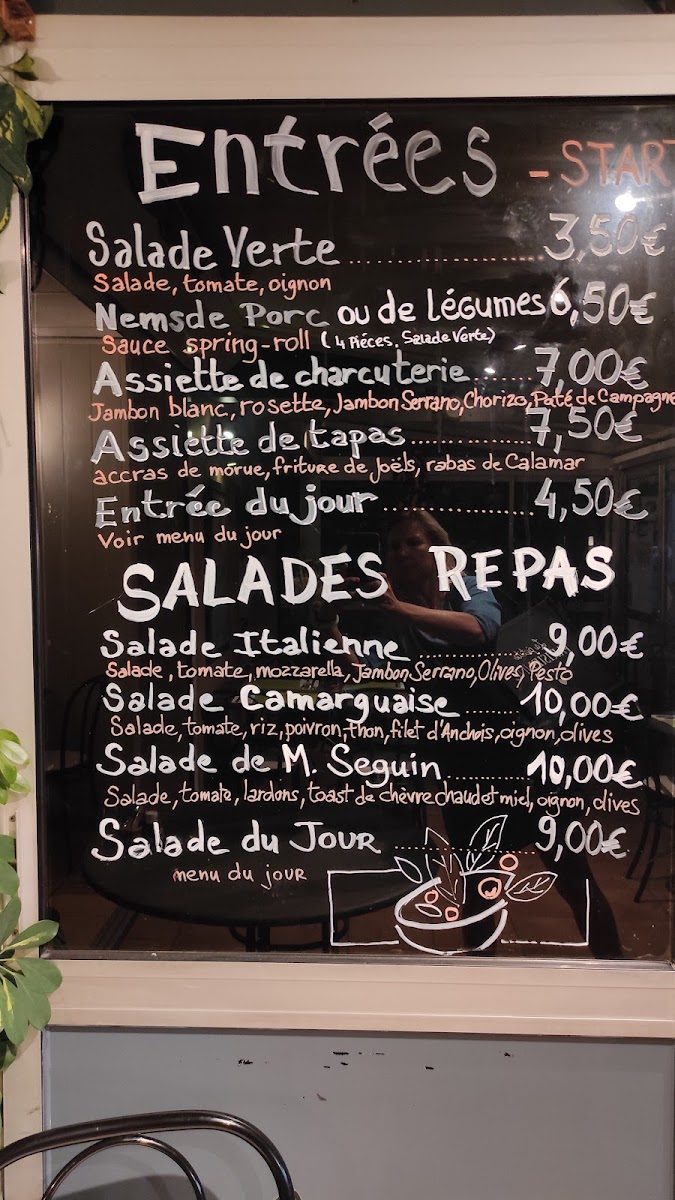 Entrées - START
Salade Verte 3,50€
Salade, tomate, oignon
Nems de Porc ou de Légumes 6,50€
Sauce spring-roll (4 Piéces, Salade Verte)
Assiette de charcuterie 7,00€
Jambon blanc, rosette, Jambon Serrano, Chorizo, Paté de Campagne
Assiette de tapas 7,50€
accras de morue, friture de Joëls, rabas de Calamar
Entrée du jour 4,50€
Voir menu du jour
SALADES REPAS
Salade Italienne 9,00€
Salade, tomate, mozzarella, Jambon Serrano, Olives, Pesto
Salade Camarguaise 10,00€
Salade, tomate, riz, poivron, thon, filet d'Anchois, oignon, olives
Salade de M. Seguin 10,00€
Salade, tomate, lardons, toast de chèvre chaud et miel, oignon, olives
Salade du Jour 9,00€
menu du jour